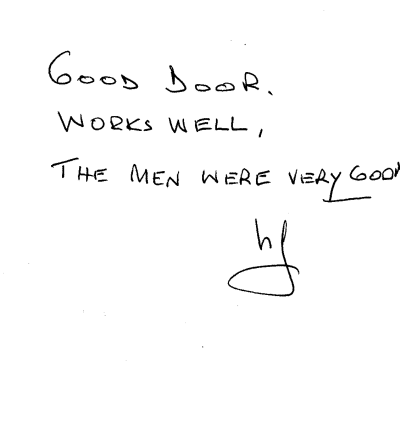 GOOD DOOR.
WORKS WELL,
THE MEN WERE VERY GOOD